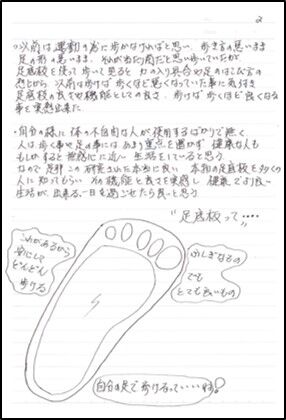 2
○以前は運動の為に歩かなければと思い 歩き方の思いまま
足の形の悪いまま、それが当り前だと思い歩いていたが、
足底板を使って歩いて見ると 力の入り具合や足のはこび方の
違から 以前は歩けば歩くほど悪くなっていた事に気付き
足底板の良さや機能としての良さ、歩けば歩くほど良くなる
事を実感出来た。
・自分の様に体の不自由な人が使用するばかりで無く、
人は歩く事や足の事には あまり重点を置かず 健康な人も
もしかすると無関心に近い 生活をしていると思う
なので 足科 この 研究された本当に良い 本物の足底板を多くの
人に知ってもらい その機能と良さを実感し 健康でより良い
生活が、出来る、一日を過ごせたら良いと思う
"足底板って‥‥
これがあるから
安心して
どんどん
歩ける
ふしぎなもの
でも
とても良いもの
自分の足で歩けるっていいね!